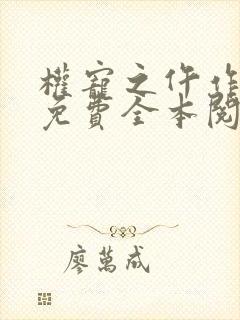 權寵之仵作
免費全本閱
廖萬成